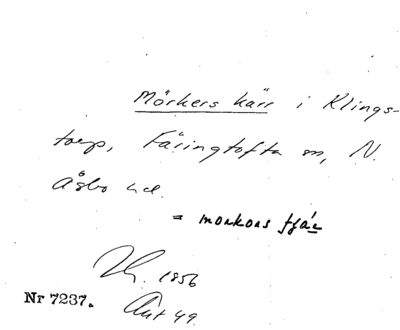 Mörkers kärr i Klings-
torp, Färingtofta sn, N.
Åsbo hd.
= morkors tjár
1856
Nr 7237. Akt 49